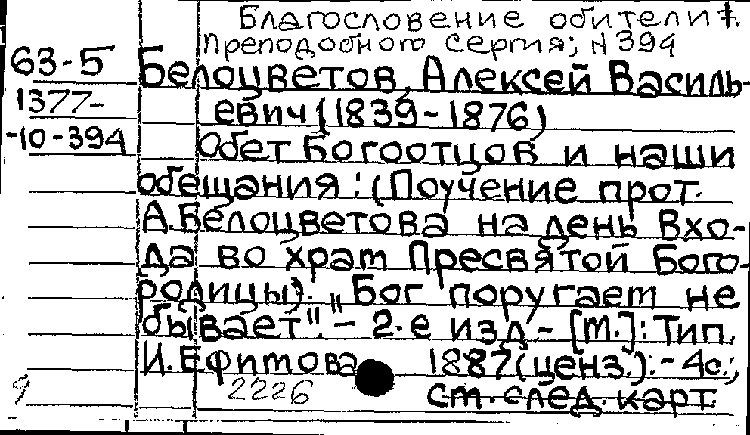 Благословение обители
Преподобного Сергия; N 394
63-5 Белоцветов, Алексей Василь-
1377- евич (1839-1876)
-10-394 Обет Богоотцов и наши
обещания: (Поучение прот.
А.Белоцветова на день Вхо-
да во храм Пресвятой Бого-
родицы). "Бог поругает не
бывает". - 2-е изд - [М.]: Тип.
И. Ефитова 1887(ценз.). - 4с.;
2226 ст. след. карт.
9